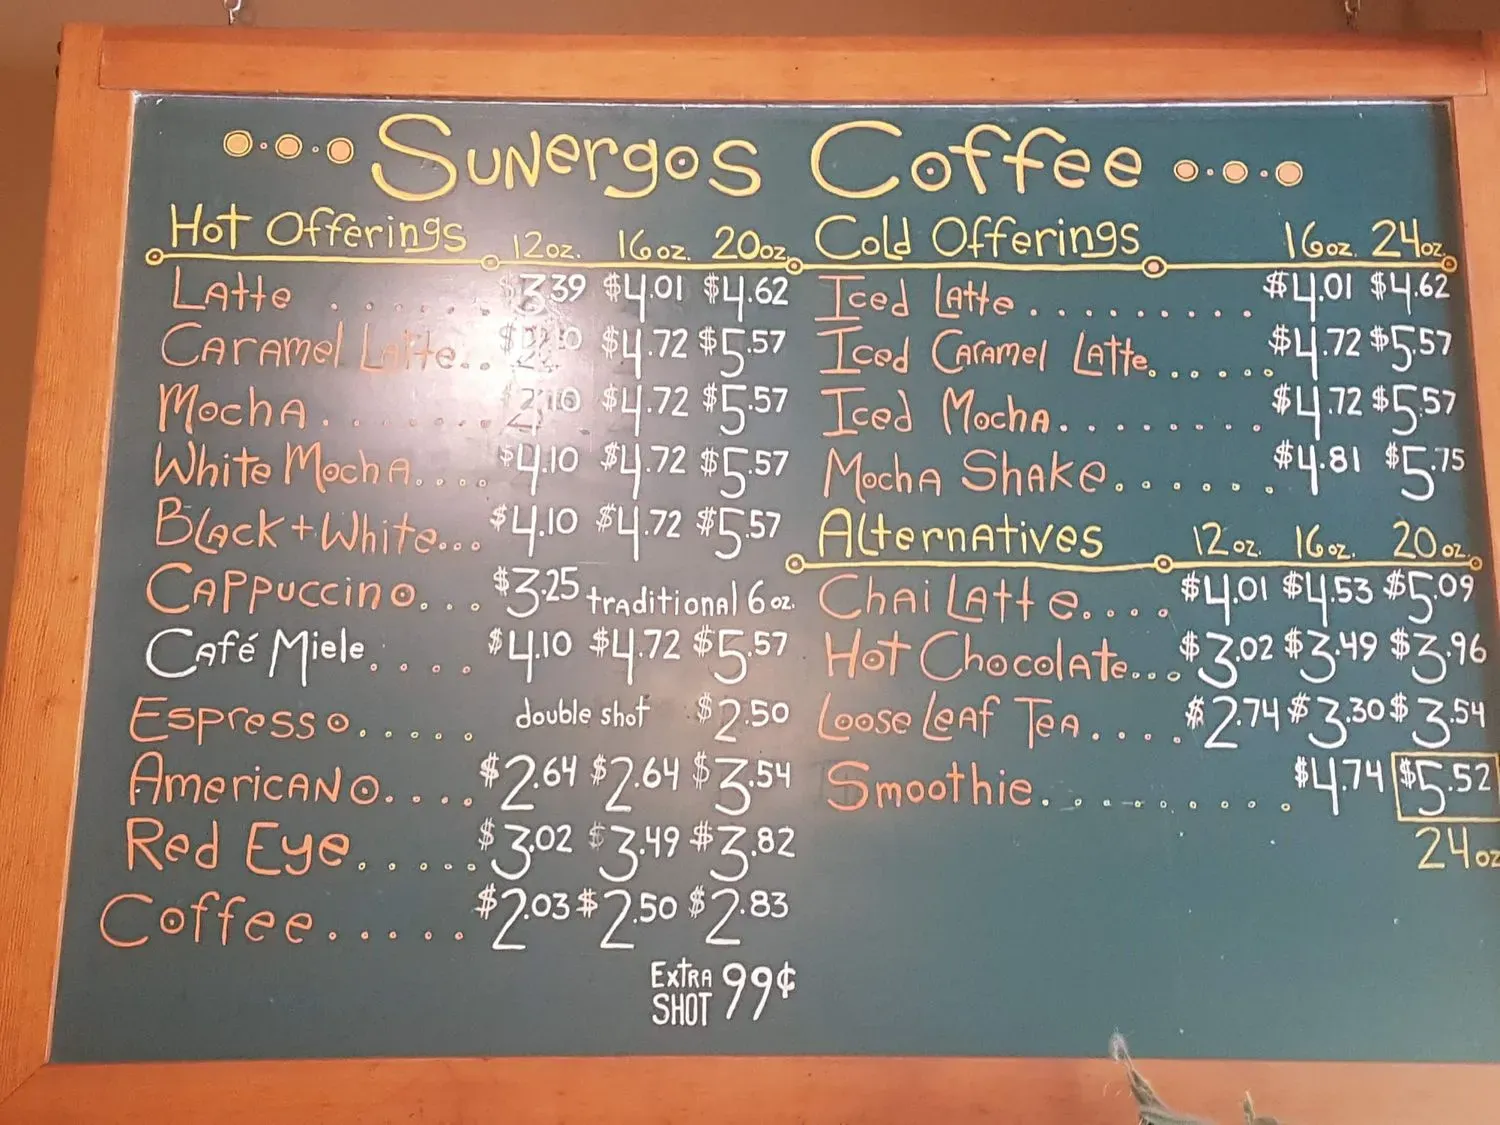 Sunergos Coffee
Hot Offerings 12oz. 16oz. 20oz.
Latte . . . . . . $3.39 $4.01 $4.62
Caramel Latte... $4.72 $5.57
Mocha . . . . . . . $4.72 $5.57
White Mocha.... $4.10 $4.72 $5.57
Black + White... $4.10 $4.72 $5.57
Cappuccino... $3.25 traditional 6oz.
Café Miele.... $4.10 $4.72 $5.57
Espresso..... double shot $2.50
Americano.... $2.64 $2.64 $3.54
Red Eye..... $3.02 $3.49 $3.82
Coffee..... $2.03 $2.50 $2.83
Extra Shot 99¢
Cold Offerings 16oz. 24oz.
Iced Latte......... $4.01 $4.62
Iced Caramel Latte...... $4.72 $5.57
Iced Mocha........ $4.72 $5.57
Mocha Shake....... $4.81 $5.75
Alternatives 12oz. 16oz. 20oz.
Chai Latte.... $4.01 $4.53 $5.09
Hot Chocolate... $3.02 $3.49 $3.96
Loose Leaf Tea.... $2.74 $3.30 $3.54
Smoothie......... $4.74 $5.52
24oz